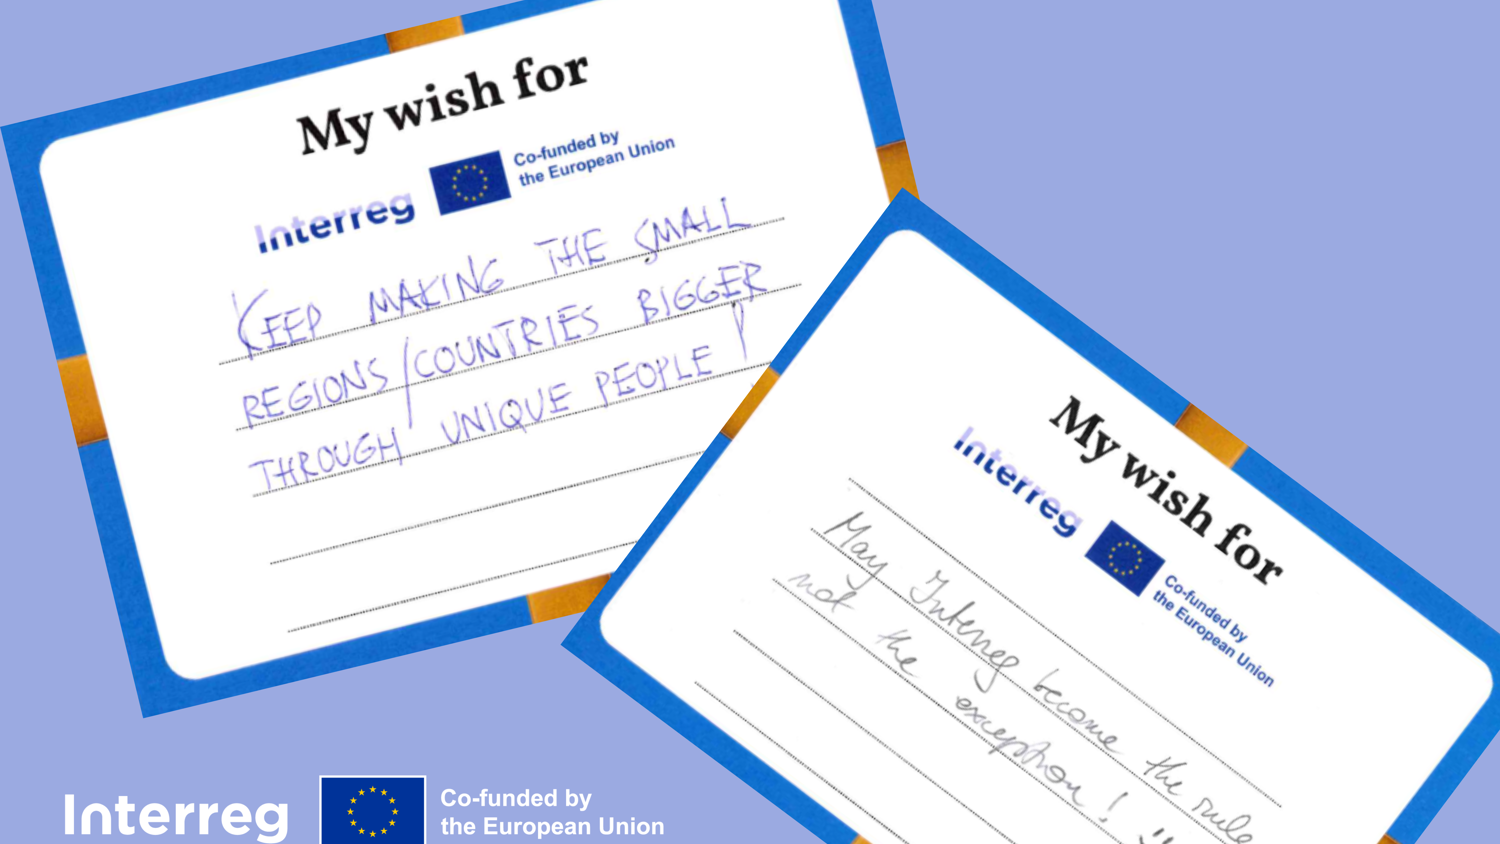 My wish for
Interreg
Co-funded by
the European Union
KEEP MAKING THE SMALL
REGIONS/COUNTRIES BIGGER
THROUGH UNIQUE PEOPLE!
My wish for
Interreg
Co-funded by
the European Union
May Interreg become the rule
not the exception!
Interreg
Co-funded by
the European Union